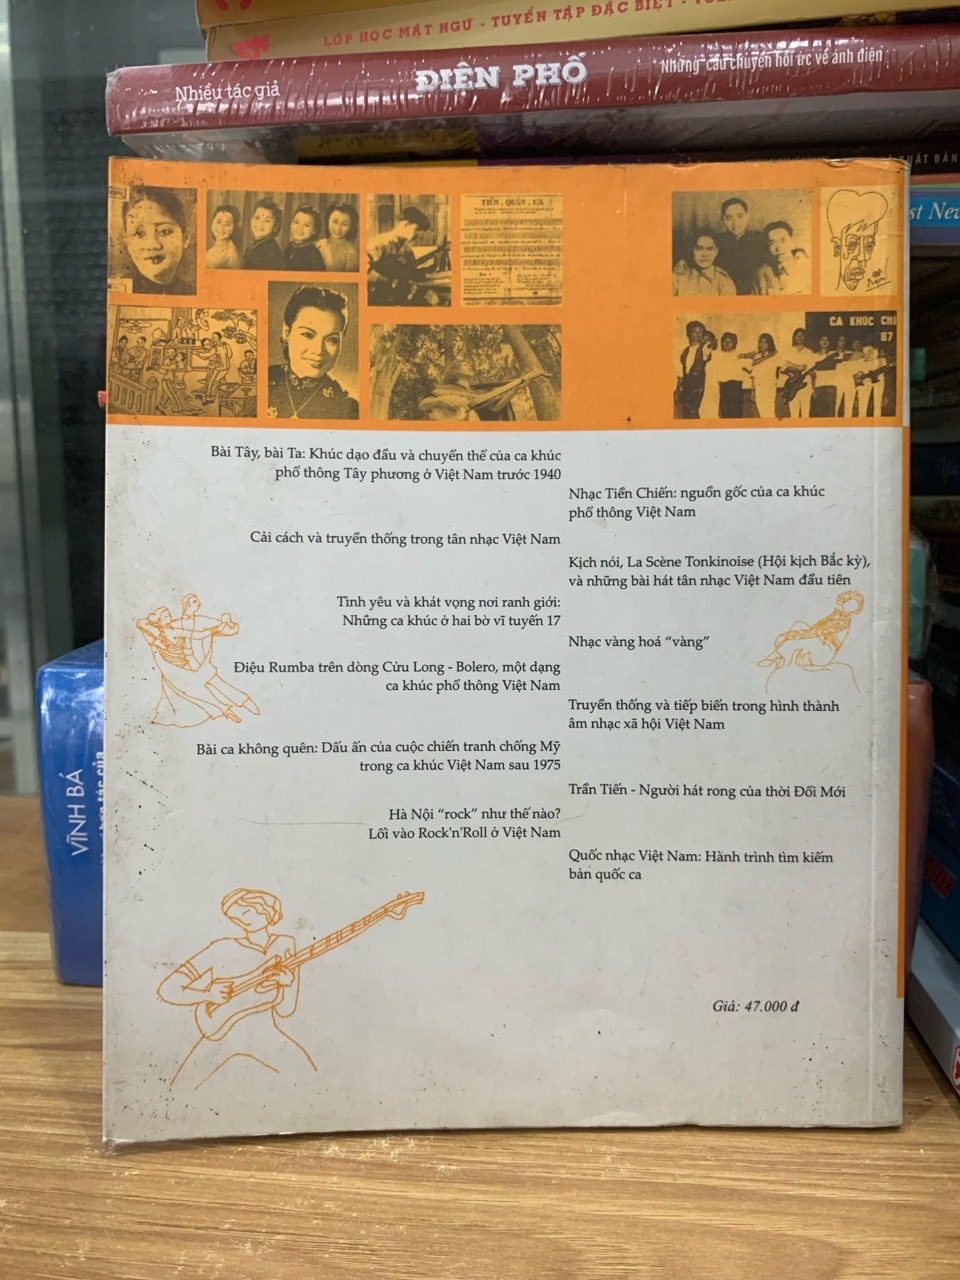 LỚP HỌC MẬT NGỮ - TUYỂN TẬP ĐẶC BIỆT
Nhiều tác giả
ĐIỆN PHỐ
Những câu chuyện hồi ức về ánh điện
TIẾN . QUÂN . CA
CA KHÚC CHÍ
87
Bài Tây, bài Ta: Khúc dạo đầu và chuyển thể của ca khúc
phổ thông Tây phương ở Việt Nam trước 1940
Nhạc Tiền Chiến: nguồn gốc của ca khúc
phổ thông Việt Nam
Cải cách và truyền thống trong tân nhạc Việt Nam
Kịch nói, La Scène Tonkinoise (Hội kịch Bắc kỳ),
và những bài hát tân nhạc Việt Nam đầu tiên
Tình yêu và khát vọng nơi ranh giới:
Những ca khúc ở hai bờ vĩ tuyến 17
Nhạc vàng hoá “vàng”
Điệu Rumba trên dòng Cửu Long - Bolero, một dạng
ca khúc phổ thông Việt Nam
Truyền thống và tiếp biến trong hình thành
âm nhạc xã hội Việt Nam
Bài ca không quên: Dấu ấn của cuộc chiến tranh chống Mỹ
trong ca khúc Việt Nam sau 1975
Trần Tiến - Người hát rong của thời Đổi Mới
Hà Nội “rock” như thế nào?
Lối vào Rock'n'Roll ở Việt Nam
Quốc nhạc Việt Nam: Hành trình tìm kiếm
bản quốc ca
Giá: 47.000 đ
VĨNH BÁ